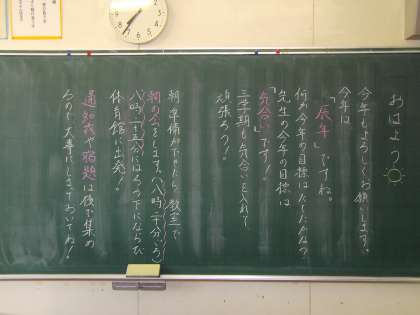 おはよう
今年もよろしくお願いします。
今年は
「辰年」ですね。
何か今年の目標はたてたかな？
先生の今年の目標は
「気合い」です！
三学期も気合いを入れて
頑張ろう！
朝準備が下きたら、教室で
朝の会をします。(八時二十分ごろ)
八時二十五分にはろう下にならび
体育館に出発！
通知表や宿題は後で集め
るので大事にしまっておいてね！